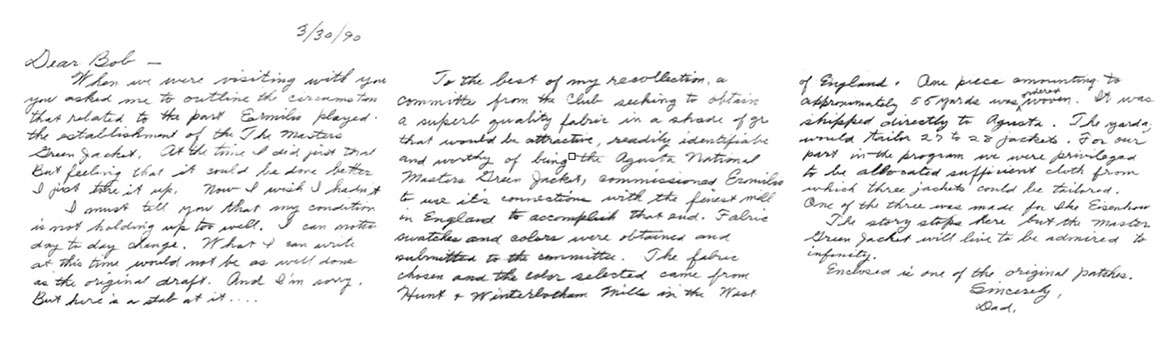 3/30/90
Dear Bob —
When we were visiting with you
you asked me to outline the circumstan
that related to the part Ermilio played.
the establishment of the The Masters
Green Jacket. At the time I did just that
But feeling that it could be done better
I just tore it up. Now I wish I hadn't
I must tell you that my condition
is not holding up too well. I can notice
day to day change. What I can write
at this time would not be as well done
as the original draft. And I'm sorry.
But here's a stab at it....
To the best of my recollection, a
committe from the Club seeking to obtain
a superb quality fabric in a shade of gr
that would be attractive, readily identifiable
and worthy of being the Agusta National
Masters Green Jacket, commissioned Ermilio
to use it's connections with the finest mill
in England to accomplish that end. Fabric
swatches and colors were obtained and
submitted to the committee. The fabric
chosen and the color selected came from
Hunt + Winterbotham Mills in the West
of England. One piece ammounting to
approximately 55 yards was ordered woven. It was
shipped directly to Agusta. The yarda
would tailor 27 to 28 jackets. For our
part in the program we were privileged
to be allocated sufficient cloth from
which three jackets could be tailored.
One of the three was made for Ike Eisenhow
The story stops here but the Master
Green Jacket will live to be admired to
infinity.
Enclosed is one of the original patches.
Sincerely,
Dad.